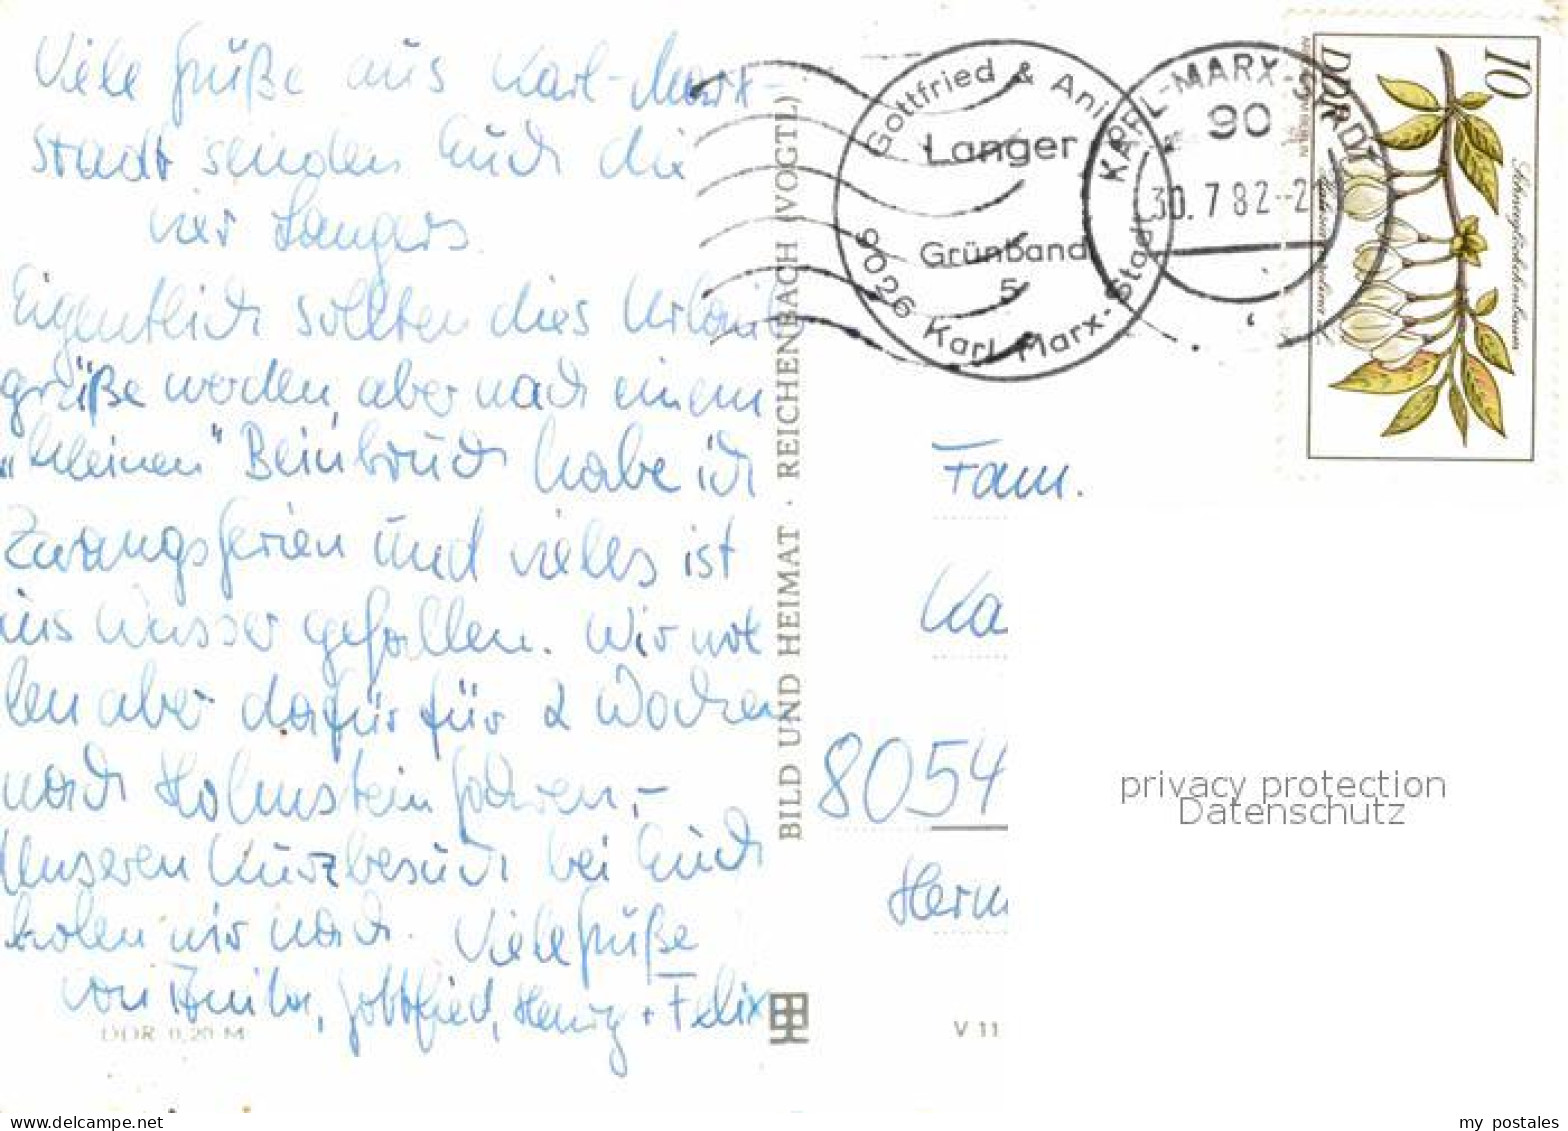 Viele Grüße aus Karl-Marx-
Stadt senden Euch die
vier Langers.
Eigentlich sollten dies Urlaubs
grüße werden, aber nach einem
"kleinen" Beinbruch habe ich
Zwangsferien und vieles ist
ins Wasser gefallen. Wir wol
len aber dafür für 2 Wochen
nach Holmstein fahren, -
Unseren Kurzbesuch bei Euch
holen wir nach. Viele Grüße
von Anita, Gottfried, Henrig + Felix
DDR 0,20 M
BILD UND HEIMAT · REICHENBACH (VOGTL)
V 11
Gottfried & Anita
Langer
Grünband
5
9026 Karl-Marx-Stadt
KARL-MARX-STADT
90
30.7.82-21
10
DDR
Schneeglöckchenbaum
Fam.
Ka
8054
Herm
privacy protection
Datenschutz
my postales